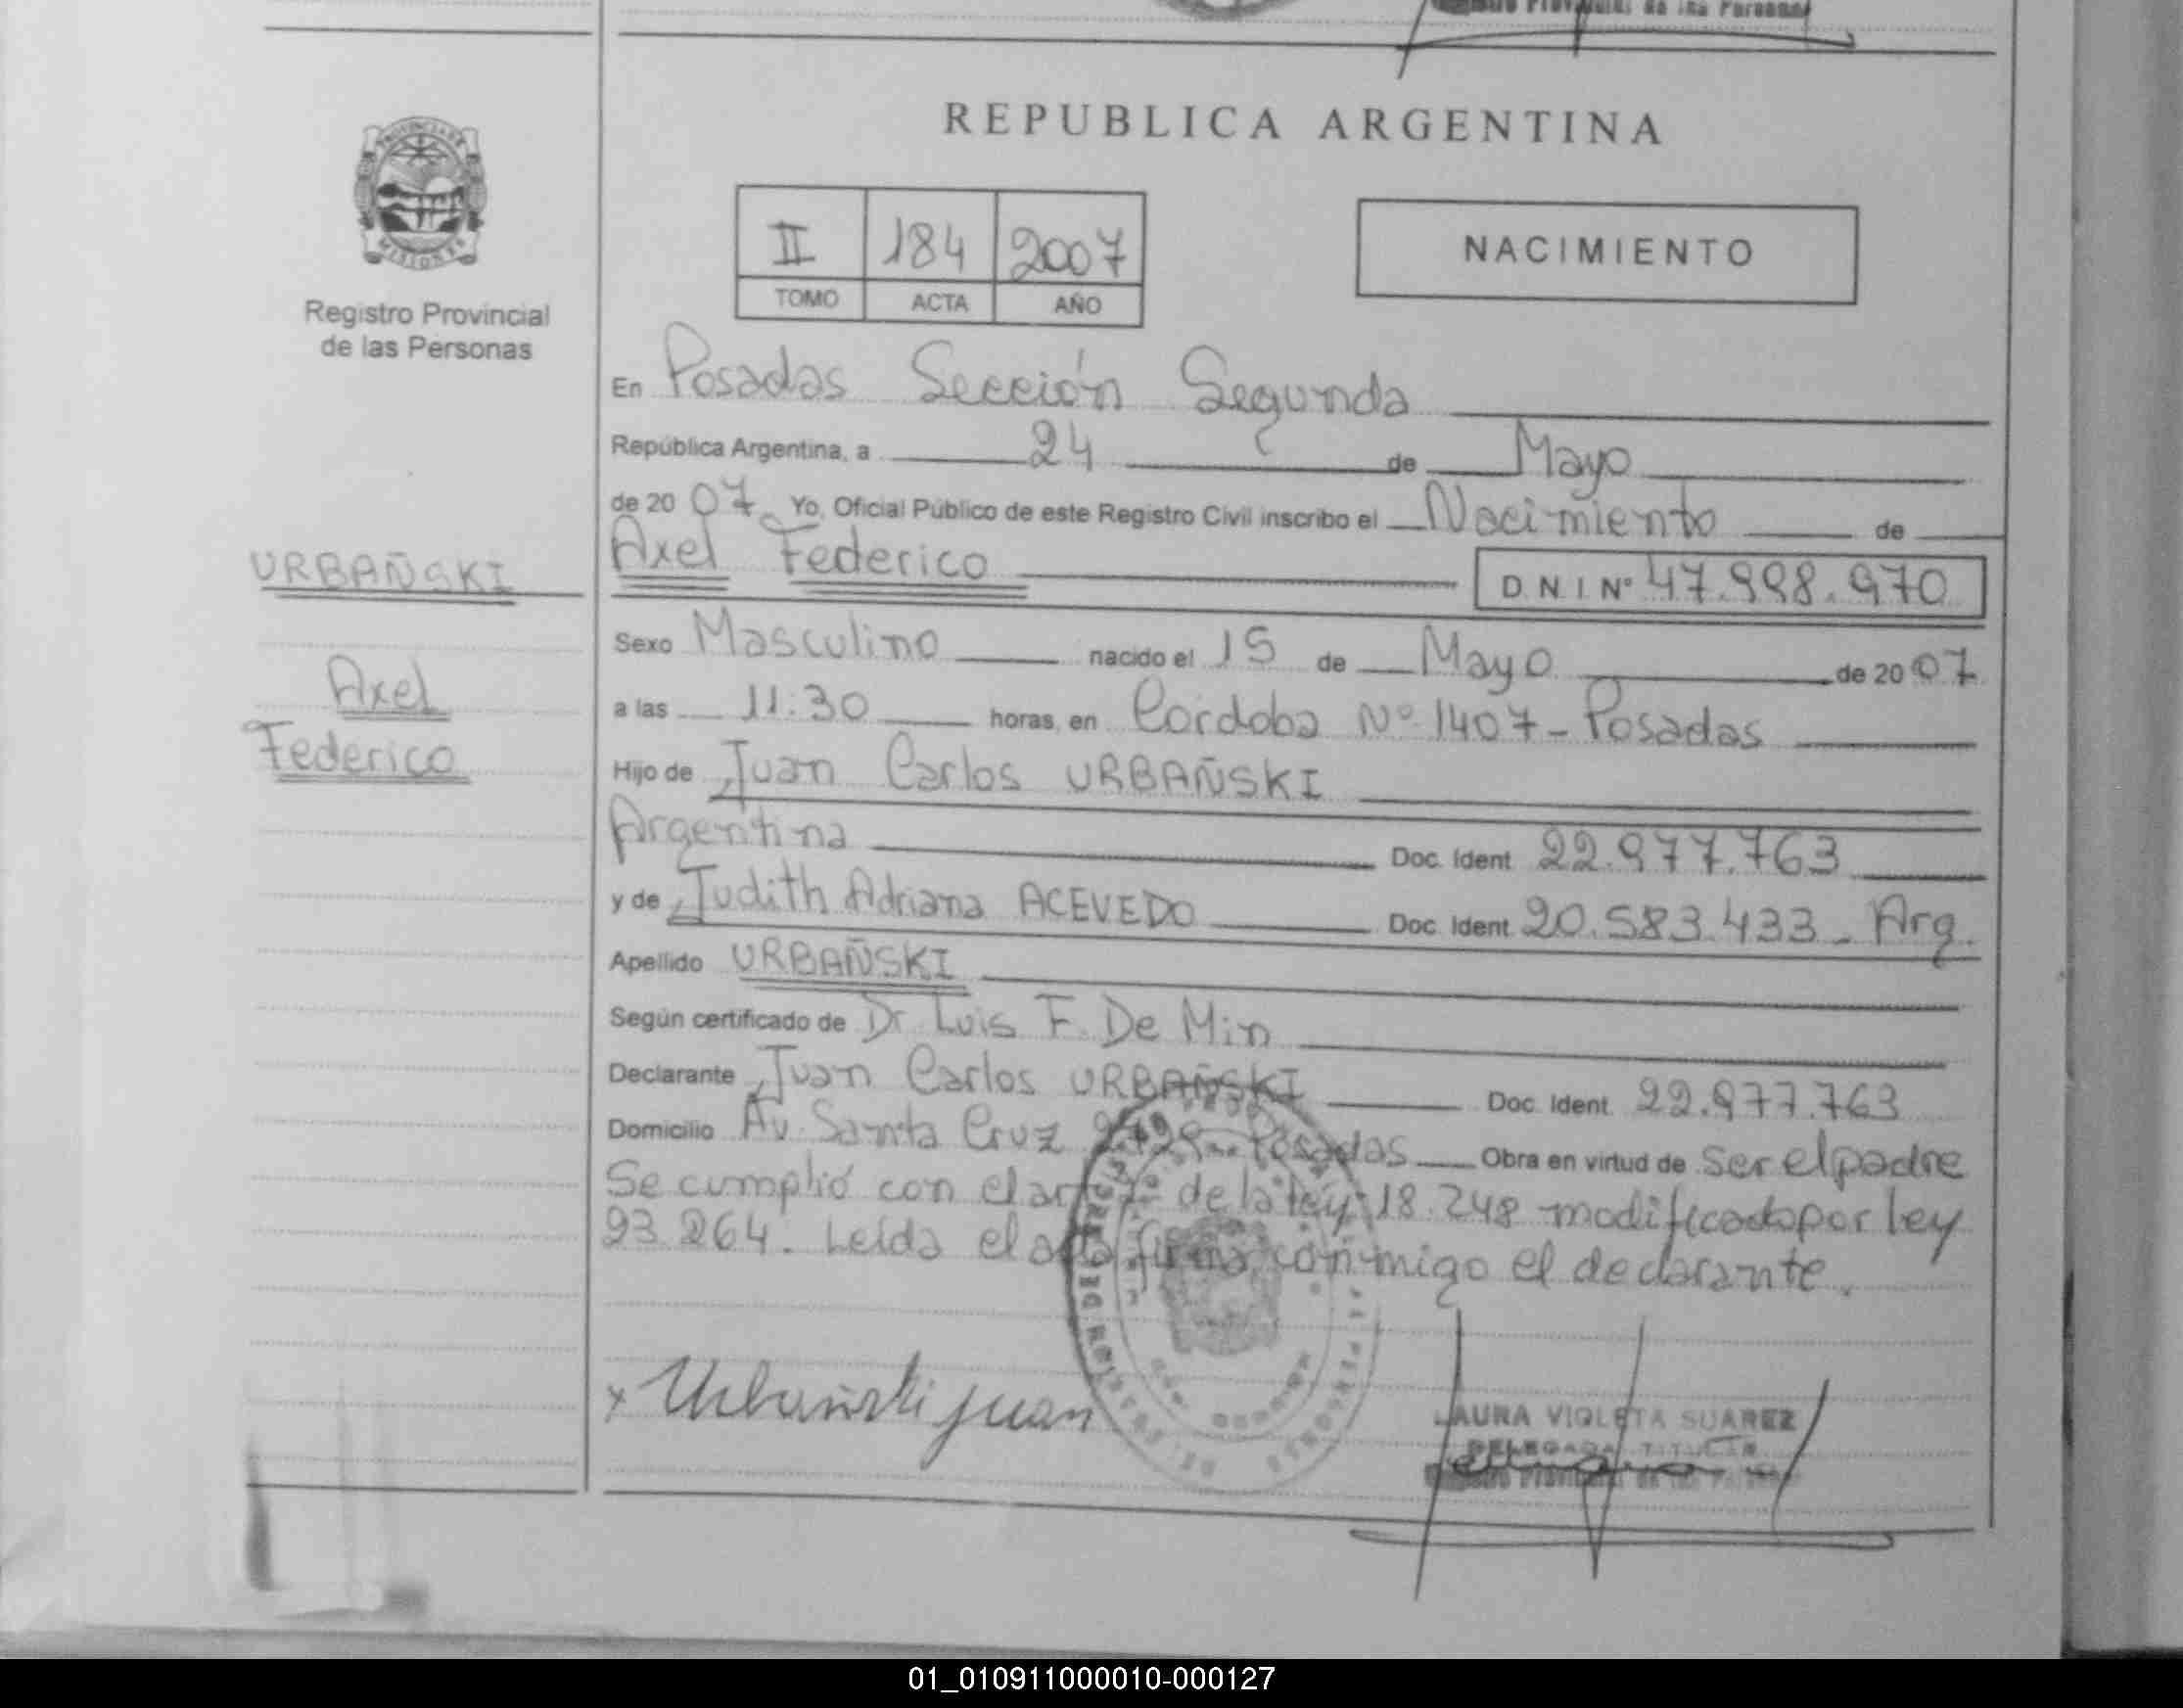 REPUBLICA ARGENTINA
II 184 2007
TOMO ACTA AÑO
NACIMIENTO
PROVINCIA DE MISIONES
Registro Provincial
de las Personas
URBAÑSKI
Axel
Federico
En Posadas Sección Segunda
República Argentina, a 24 de Mayo
de 2007 Yo, Oficial Público de este Registro Civil inscribo el Nacimiento de
Axel Federico D.N.I Nº 47.998.970
Sexo Masculino nacido el 15 de Mayo de 2007
a las 11:30 horas, en Córdoba Nº 1407 - Posadas
Hijo de Juan Carlos URBAÑSKI
Argentina Doc. Ident. 22.977.763
y de Judith Adriana ACEVEDO Doc. Ident. 20.583.433 - Arg.
Apellido URBAÑSKI
Según certificado de Dr Luis F. De Min
Declarante Juan Carlos URBAÑSKI Doc. Ident. 22.977.763
Domicilio Av. Santa Cruz Posadas Obra en virtud de Ser el padre
Se cumplió con el art de la ley 18.248 modificado por ley
23.264. Leída el acta firma conmigo el declarante.
x Urbañski Juan
LAURA VIOLETA SUAREZ
DELEGADA TITULAR
Registro Provincial de las Personas
01_010911000010-000127